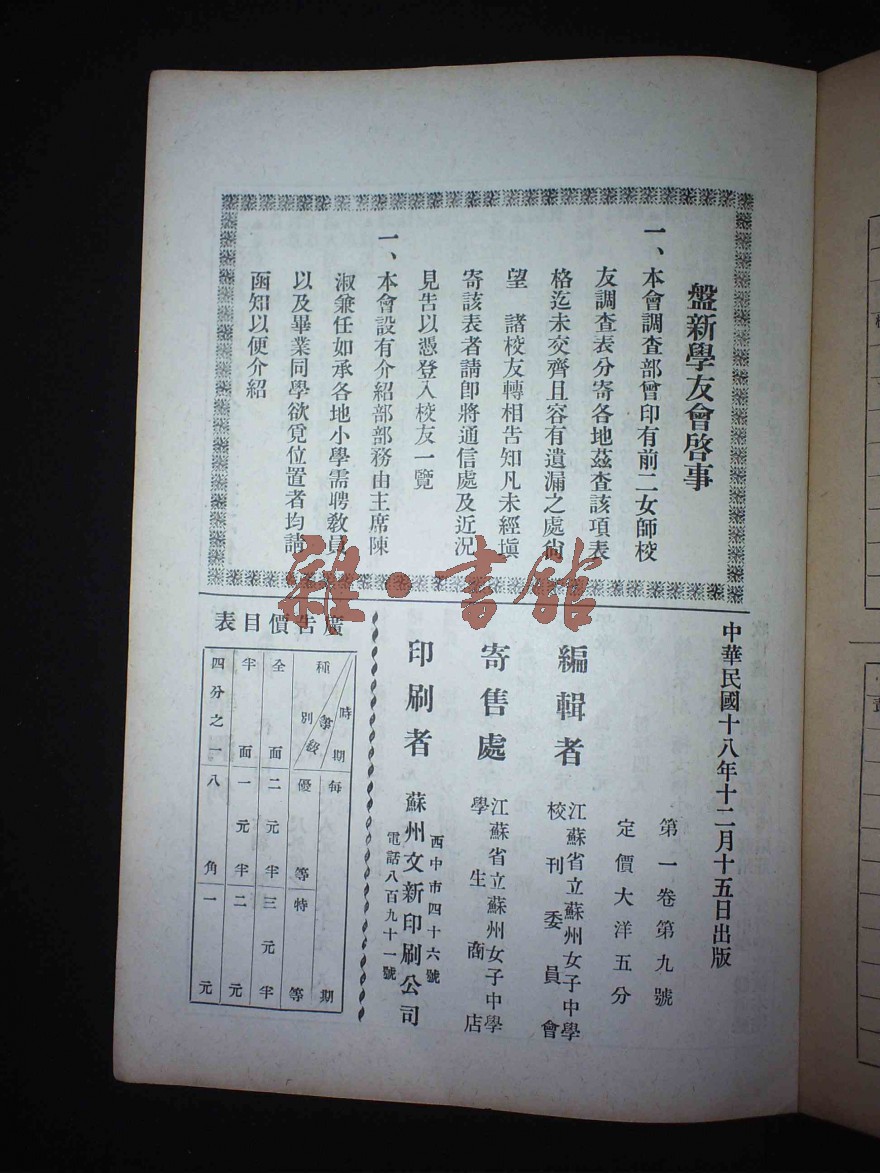 盤新學友會啓事
一、本會調查部曾印有前二女師校
友調查表分寄各地茲查該項表
格迄未交齊且容有遺漏之處尙
望　諸校友轉相告知凡未經塡
寄該表者請卽將通信處及近況
見告以憑登入校友一覽
一、本會設有介紹部部務由主席陳
淑兼任如承各地小學需聘敎員
以及畢業同學欲覓位置者均請
函知以便介紹
雜·書館
中華民國十八年十二月十五日出版
第一卷第九號
定價大洋五分
編輯者
江蘇省立蘇州女子中學
校刊委員會
寄售處
江蘇省立蘇州女子中學
學生商店
印刷者
西中市四十六號
蘇州文新印刷公司
電話八百九十一號
廣告價目表
時期
等級
種別
每期
優等
特等
全面
二元半
三元半
半面
一元半
二元
四分之一
八角
一元